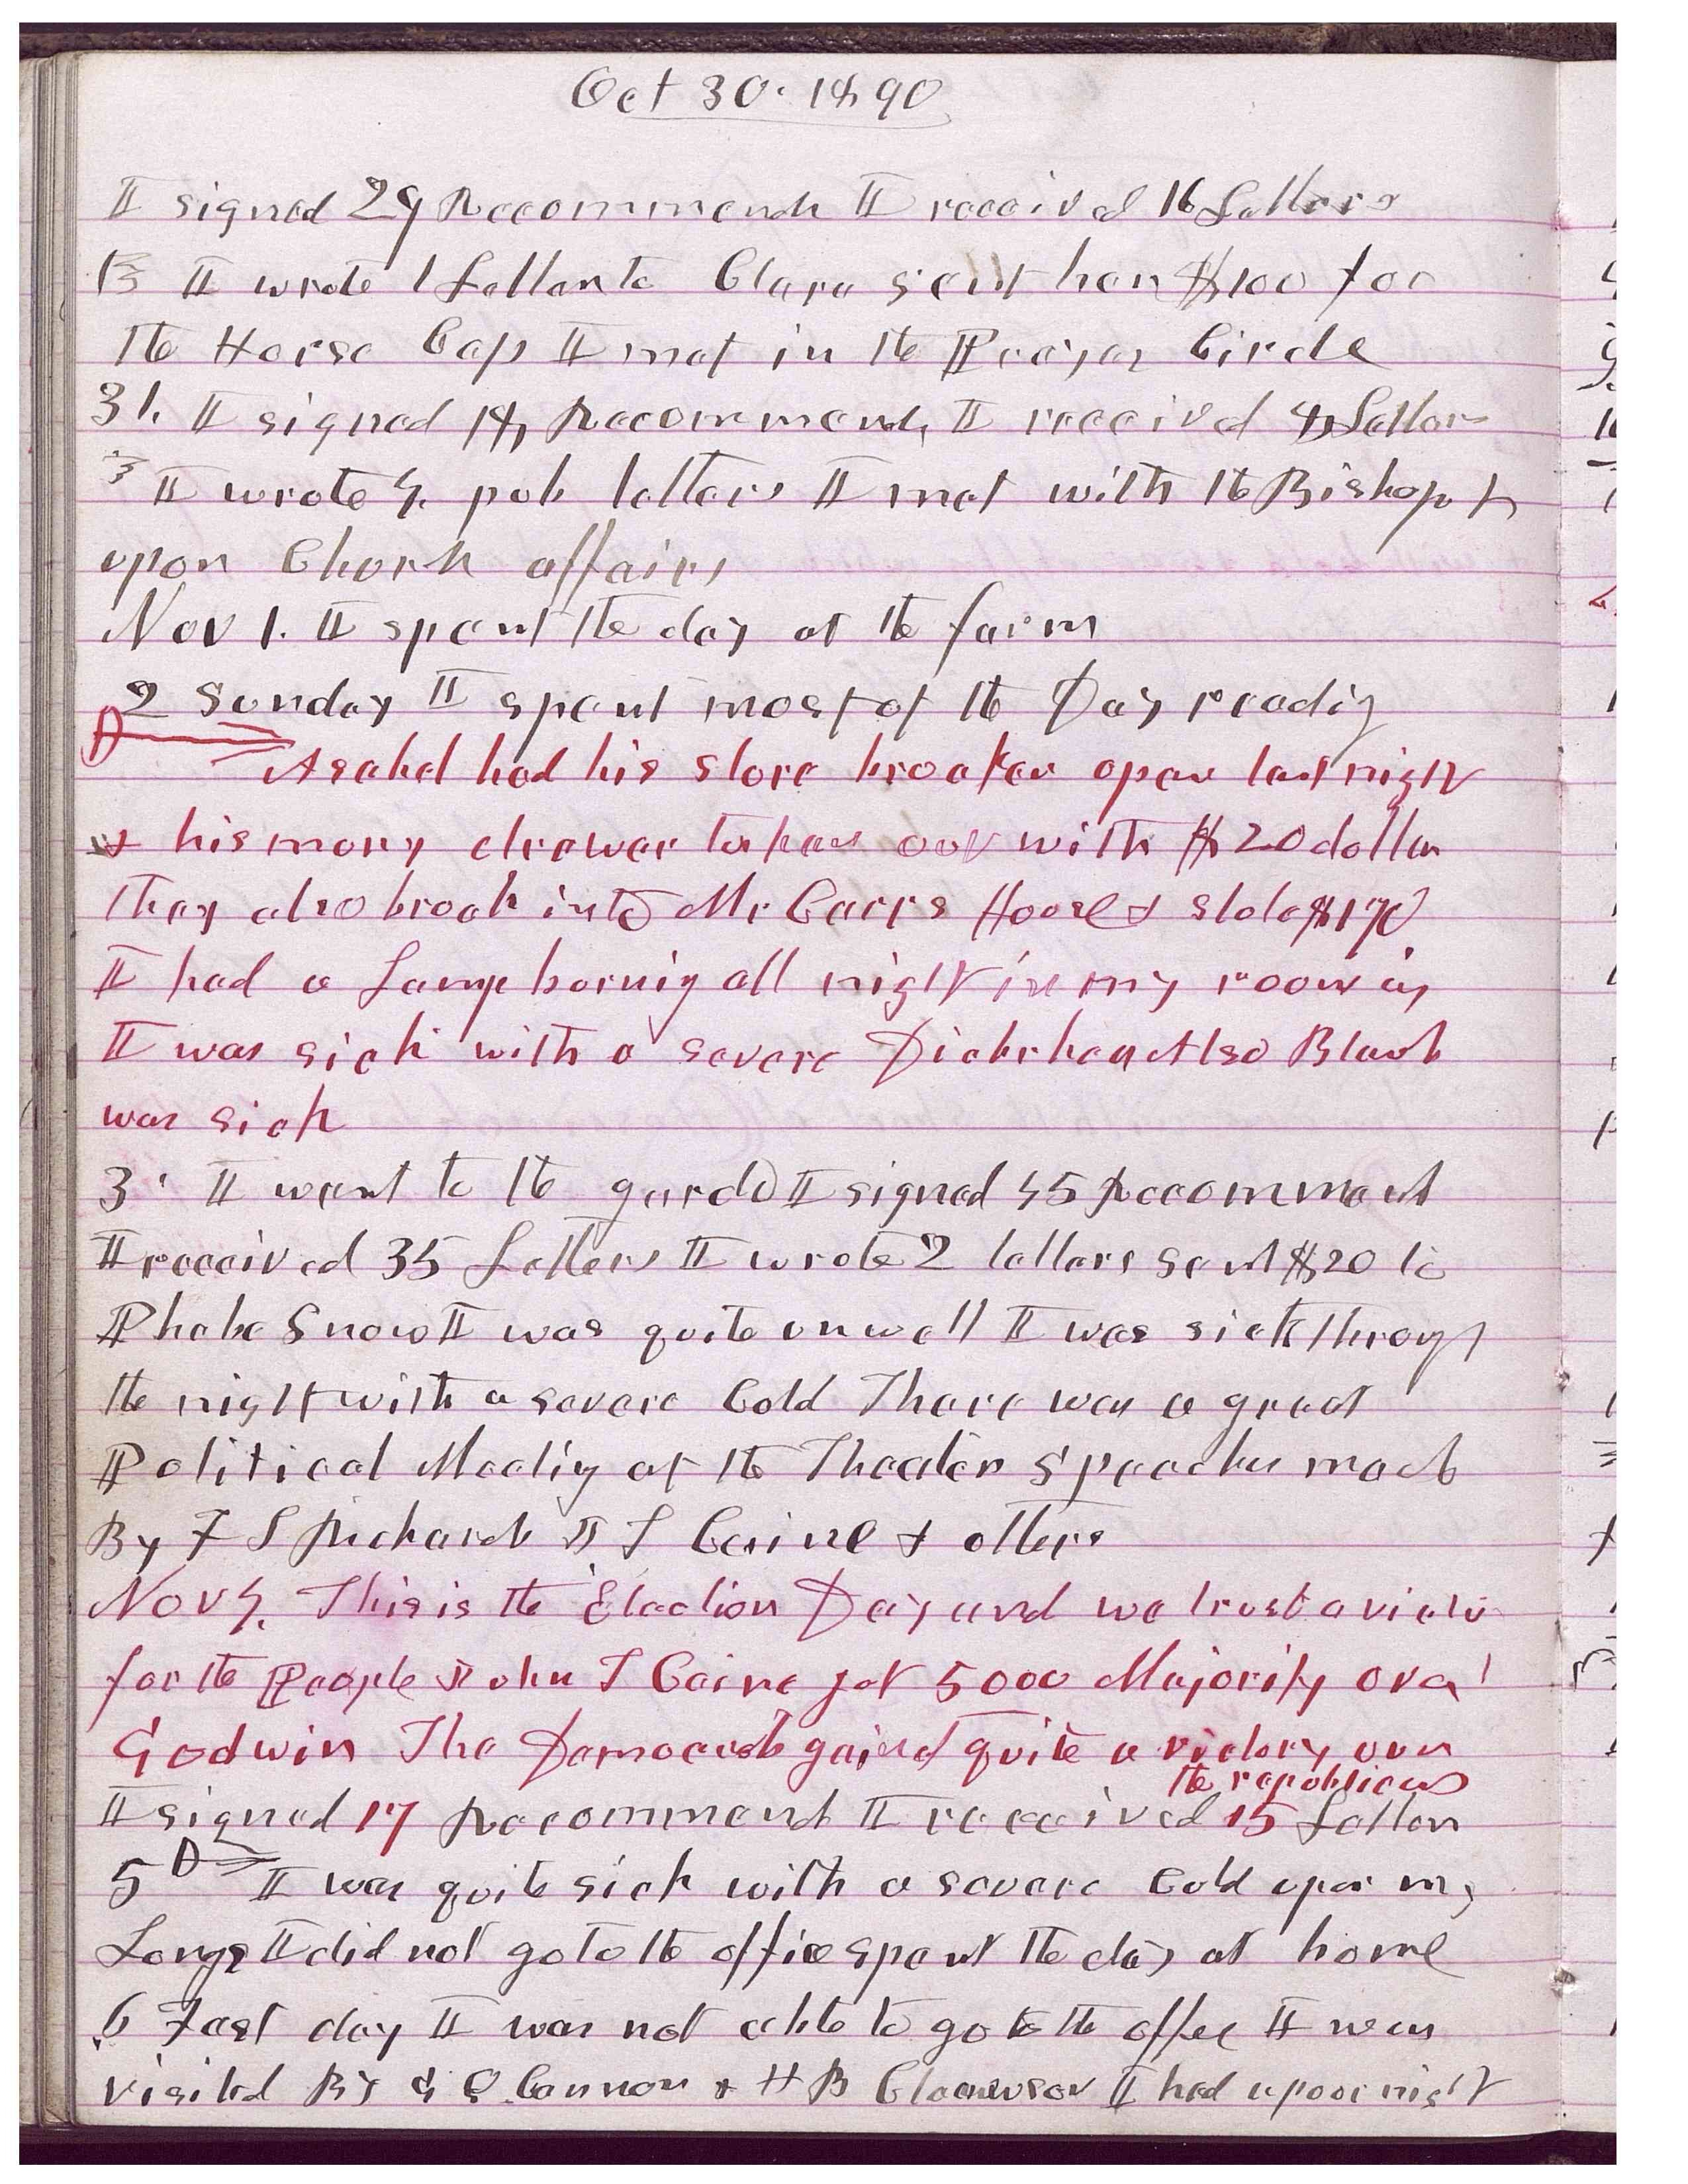 Oct 30. 1890
I signed 29 Recommends I received 16 Letters
I wrote 1 Letter to Clara sent her $100 for
the Horse Cap I met in the Prayer Circle
31. I signed 14 Recommends I received 4 Letters
I wrote 4 pub letters I met with the Bishop
upon Church affairs
Nov 1. I spent the day at the farm
2 Sunday I spent most of the Day reading
Asahel had his store broaken open last night
& his mony drawer taken out with $20 dollars
They also broak into Mr Carrs House & stole $170
I had a Lamp burnig all night in my room as
I was sick with a severe Diahrhea Also Blanch
was sick
3 I went to the gardo I signed 45 Recommends
I received 35 Letters I wrote 2 letters sent $20 to
Phebe Snow I was quite unwell I was sick through
the night with a severe Cold There was a great
Political Meetig at the Theater Speeches made
By F S Richards J T Caine & others
Nov 4. This is the Election Day and we trust a victry
for the People John T Caine got 5000 Majority over
Godwin The Democrats gained quite a victory over
the republicans
I signed 17 Recommends I received 15 Letters
5 I was quite sick with a severe Cold upon my
Lungs I did not go to the office spent the day at home
6 Fast day I was not able to go to the offce I was
visited By G Q Cannon & H B Clawson I had a poor night